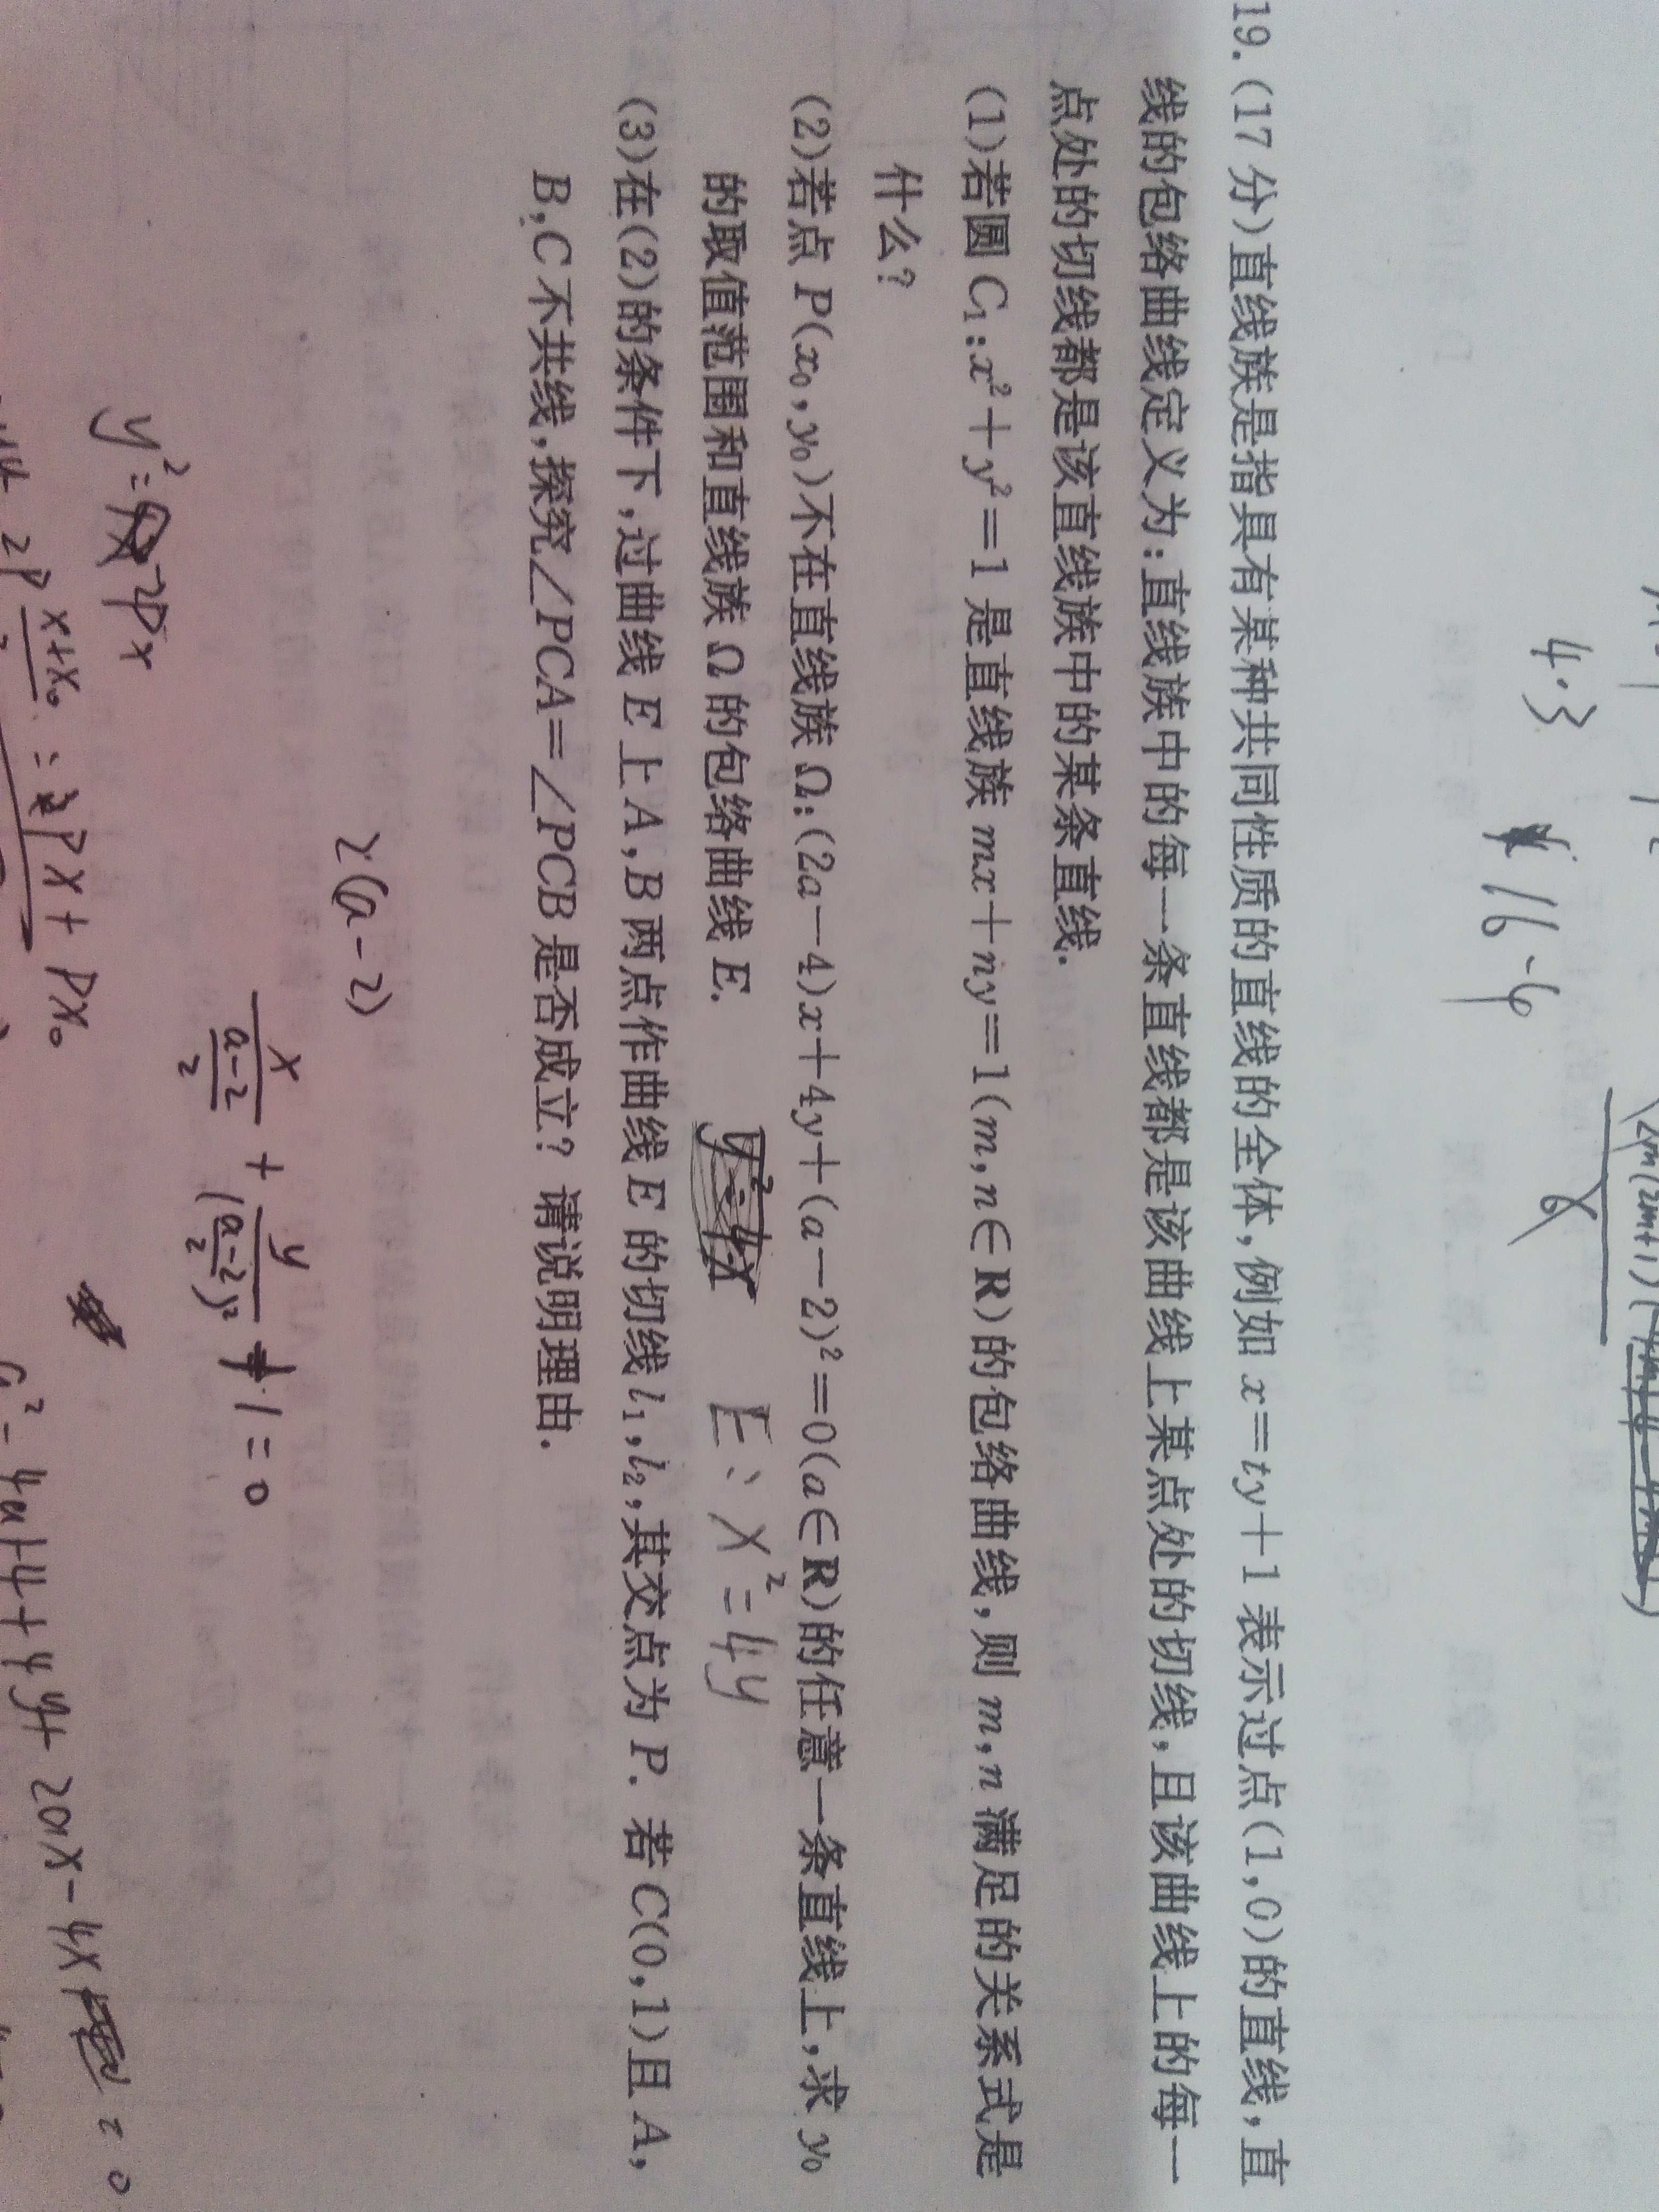 4·3
16-y
19.(17分)直线族是指具有某种共同性质的直线的全体,例如 x=ty+1 表示过点(1,0)的直线,直
线的包络曲线定义为:直线族中的每一条直线都是该曲线上某点处的切线,且该曲线上的每一
点处的切线都是该直线族中的某条直线.
(1)若圆 C₁:x²+y²=1 是直线族 mx+ny=1(m,n∈R)的包络曲线,则 m,n 满足的关系式是
什么?
(2)若点 P(x₀,y₀)不在直线族 Ω:(2a-4)x+4y+(a-2)²=0(a∈R)的任意一条直线上,求 y₀
的取值范围和直线族 Ω 的包络曲线 E.
E: x²=4y
(3)在(2)的条件下,过曲线 E 上 A,B 两点作曲线 E 的切线 l₁,l₂,其交点为 P. 若 C(0,1)且 A,
B,C 不共线,探究∠PCA=∠PCB 是否成立?请说明理由.
2(a-2)